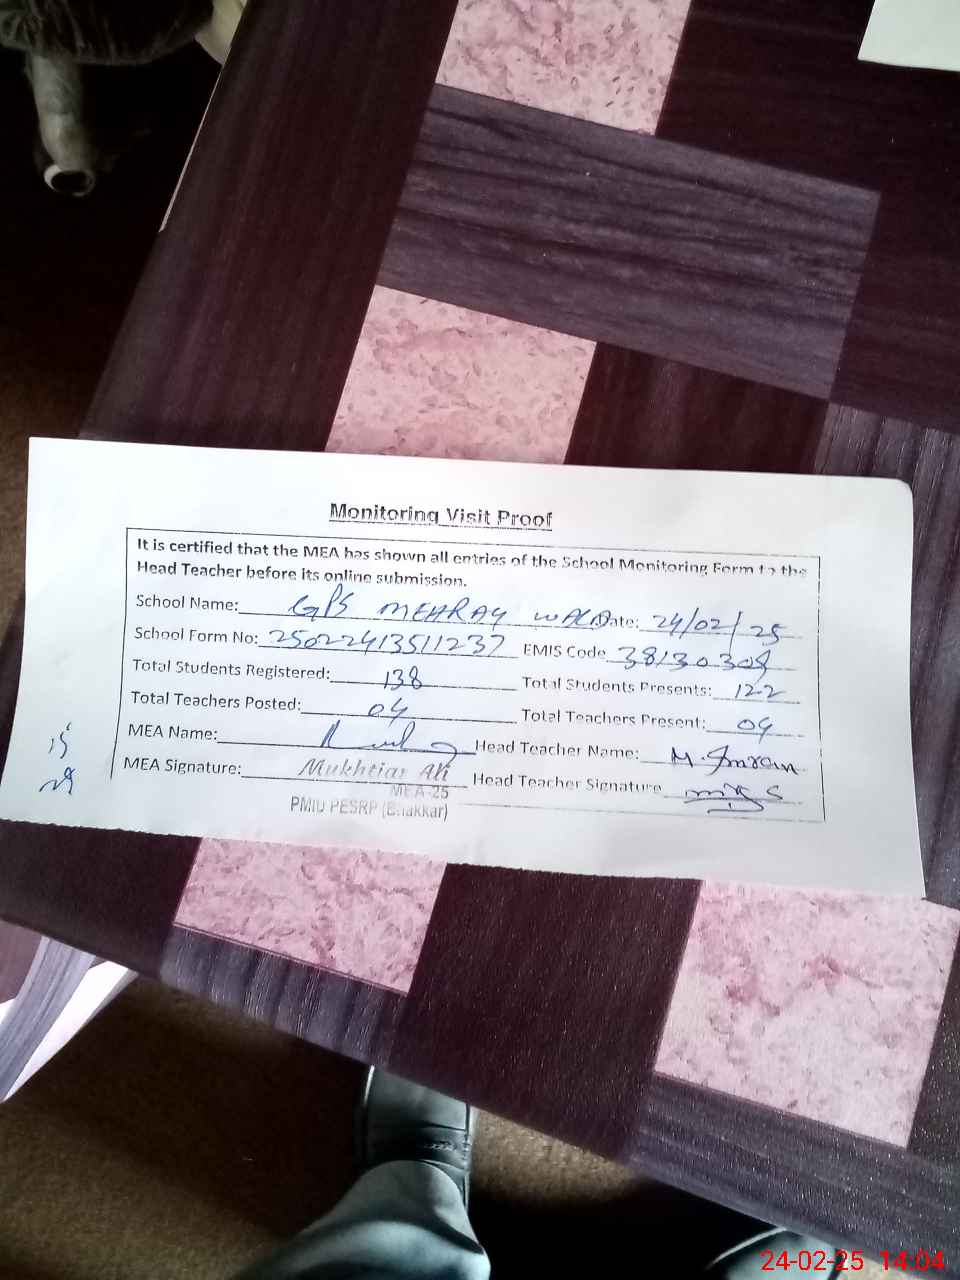 Monitoring Visit Proof
It is certified that the MEA has shown all entries of the School Monitoring Form to the
Head Teacher before its online submission.
School Name: GPS MEHRAY WALA Date: 24/02/25
School Form No: 25022413511237 EMIS Code 38130308
Total Students Registered: 138 Total Students Presents: 122
Total Teachers Posted: 04 Total Teachers Present: 04
MEA Name: Head Teacher Name: M. Imran
MEA Signature: Mukhtiar Ali Head Teacher Signature
MEA-25
PMIU PESRP (Bhakkar)
24-02-25 14:04